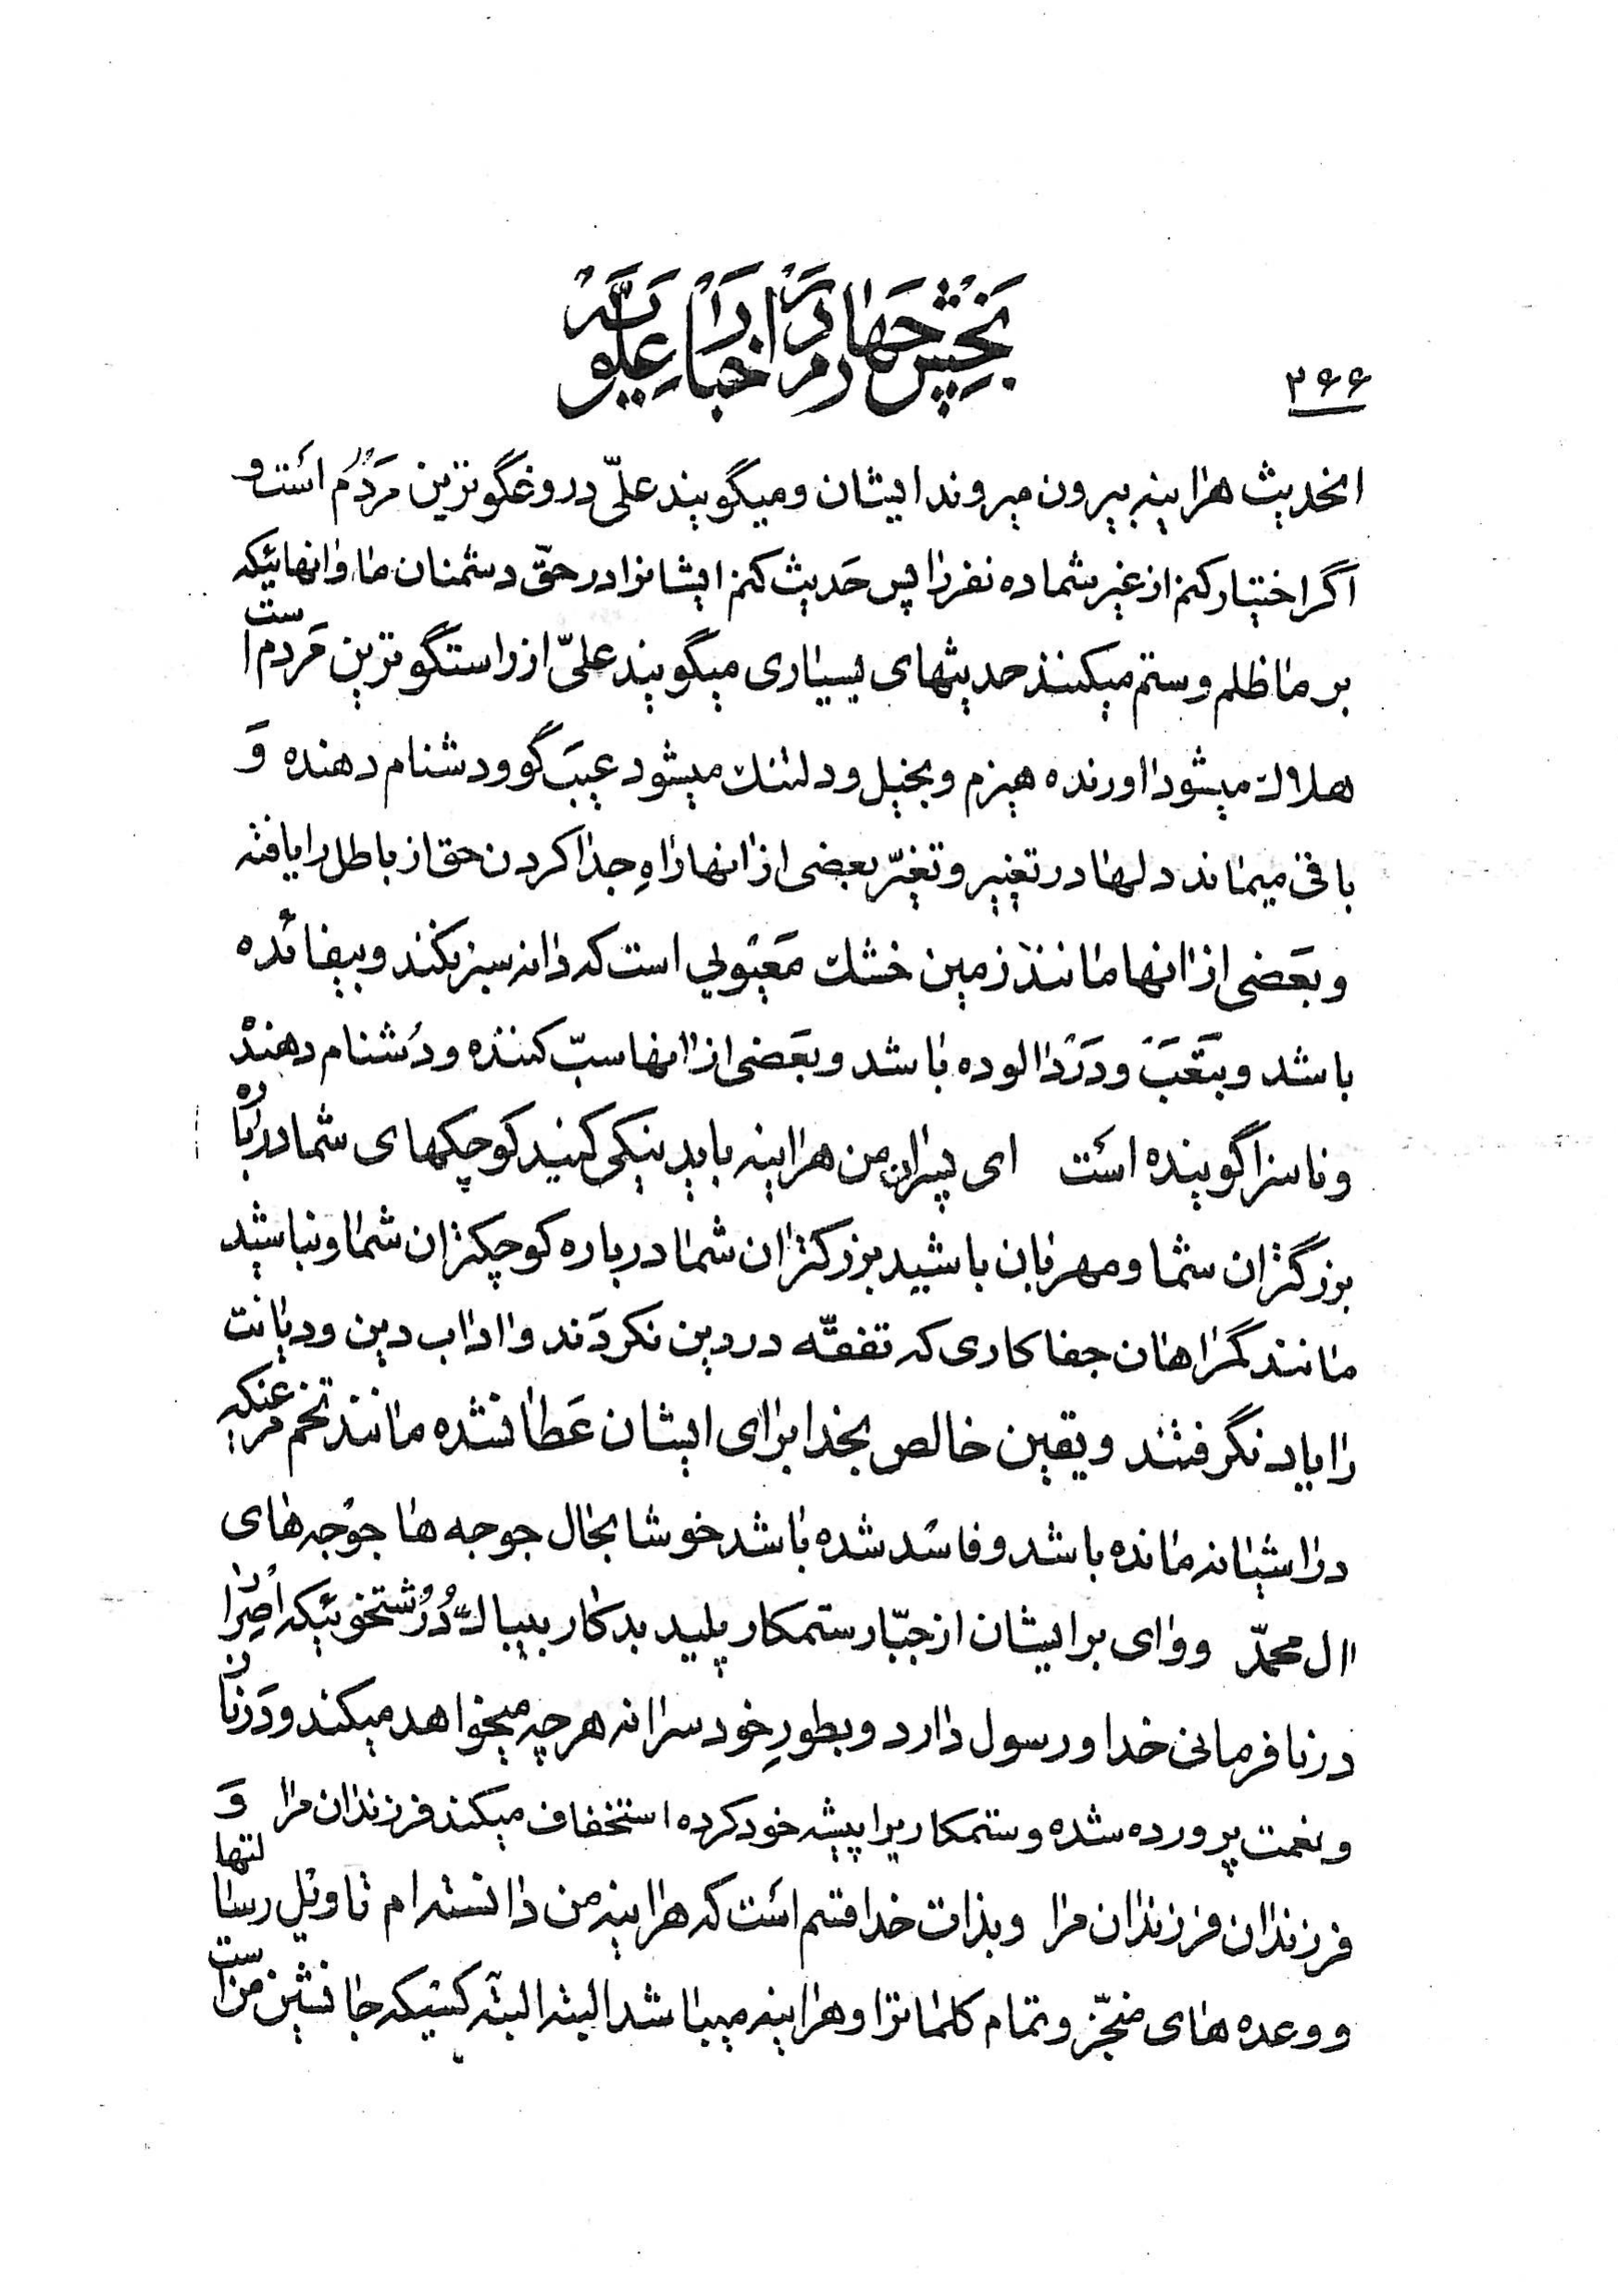 بخش چهارم در اخبار علویّه
۲۶۶
انحدیث هراینه بیرون میروند ایشان و میگویند علیّ دروغگوترین مَردُم است و
اگر اختیار کنم از غیر شما ده نفر را پس حَدیث کنم ایشانرا در حقّ دشمنان ما وانهائیکه
بر ما ظلم و ستم میکنند حدیثهای بسیاری میگویند علیّ از راستگوترین مَردم است
هلاك میشود اورنده هیزم و بخیل و دلتنك میشود عیبَ گو و دشنام دهنده وَ
باقی میماند دلها در تغییر و تغیّر بعضی از انها راهِ جدا کردن حق از باطل را یافته
و بعَضی از انها مانند زمین خشك مَعیوبی است که دانه سبز نکند و بیفائده
باشد و بتَعَبَ و دَرَد الوده باشد و بعَضی از انها سبّ کننده و دُشنام دهندْه
و ناسزا گوینده است ای پسران من هراینه باید نیکی کنید کوچکهای شما دربارهٔ
بزرگتران شما و مهربان باشید بزرگتران شما درباره کوچکتران شما و نباشید
مانند گمراهان جفاکاری که تفقّه در دین نکردَند و اداب دین و دیانت
را یاد نگرفتند و یقین خالص بخدا برای ایشان عَطا نشده مانند تخم مرغیکه
در اشیانه مانده باشد و فاسد شده باشد خوشا بحال جوجه ها جوجه های
ال محمدّ و وای بر ایشان از جبّار ستمکار پلید بدکار بیباك دُرُشتخوئیکه اصرار
در نافرمانی خدا و رسول دارد و بطورِ خودسرانه هرچه میخواهد میکند و دَر ناز
و نعمت پرورده شده و ستمکاریرا پیشه خود کرده استخفاف میکند فرزندان مرا وَ
فرزندان فرزندان مرا و بذات خدا قسم است که هراینه من دانسته ام تاویل رسالتها
و وعده های منجّز و تمام کلماترا و هراینه میباشد البته البته کسیکه جانشین من است